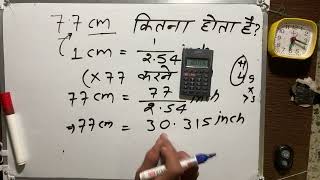 77 cm कितना होता है?
1 cm = 1/2.54
(×77 करने
77 cm = 77/2.54 inch
⇒77 cm = 30.315 inch